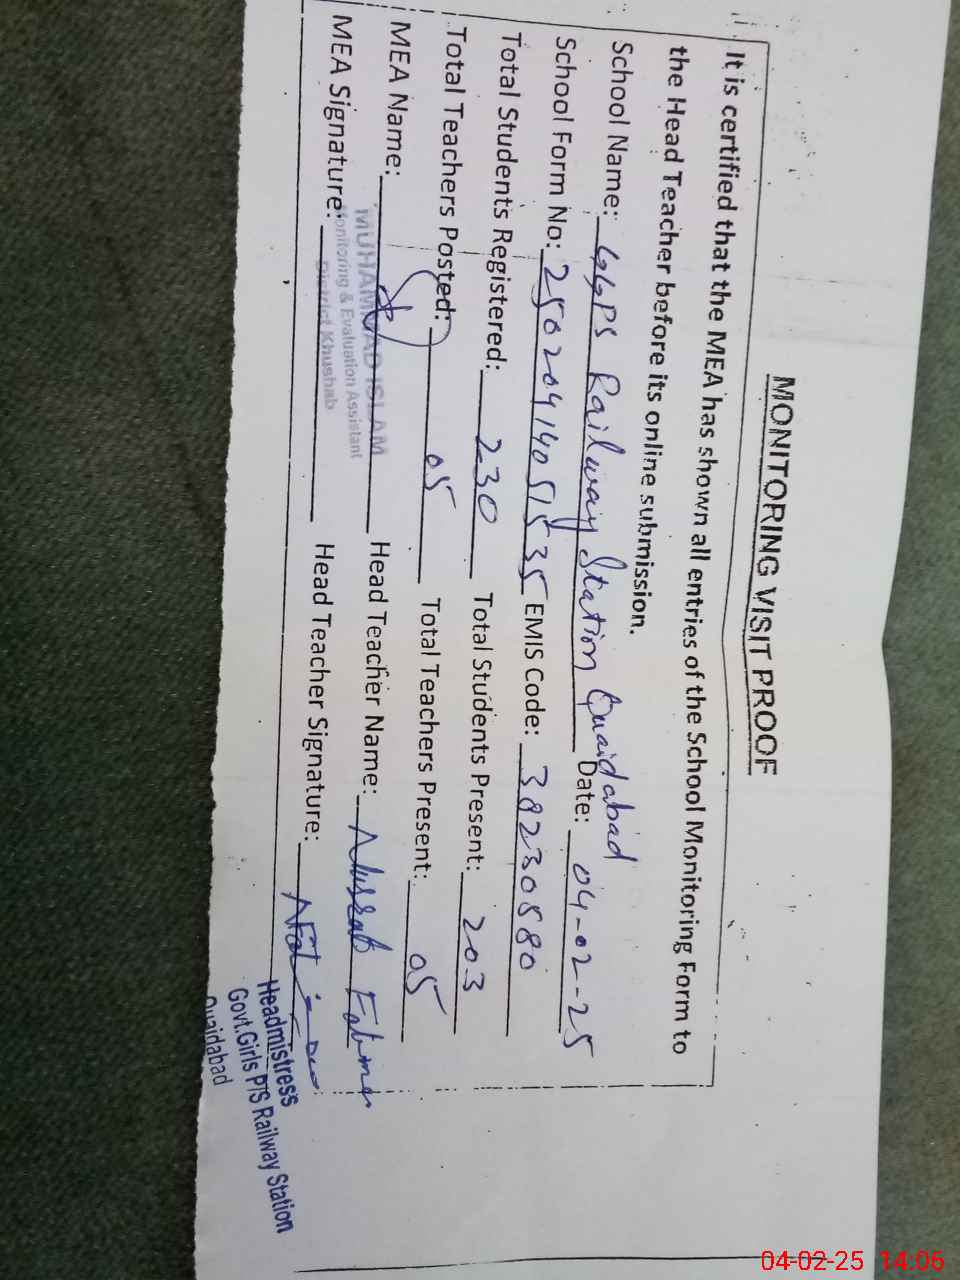 MONITORING VISIT PROOF
It is certified that the MEA has shown all entries of the School Monitoring Form to
the Head Teacher before its online submission.
School Name: GGPS Railway Station Quaidabad Date: 04-02-25
School Form No: 25020414051535 EMIS Code: 38230580
Total Students Registered: 230 Total Students Present: 203
Total Teachers Posted: 05 Total Teachers Present: 05
MEA Name: Head Teacher Name: Nusrat Fatima
MUHAMMAD ISLAM
Monitoring & Evaluation Assistant
District Khushab
MEA Signature: Head Teacher Signature:
Headmistress
Govt.Girls P/S Railway Station
Quaidabad
04-02-25 14:06